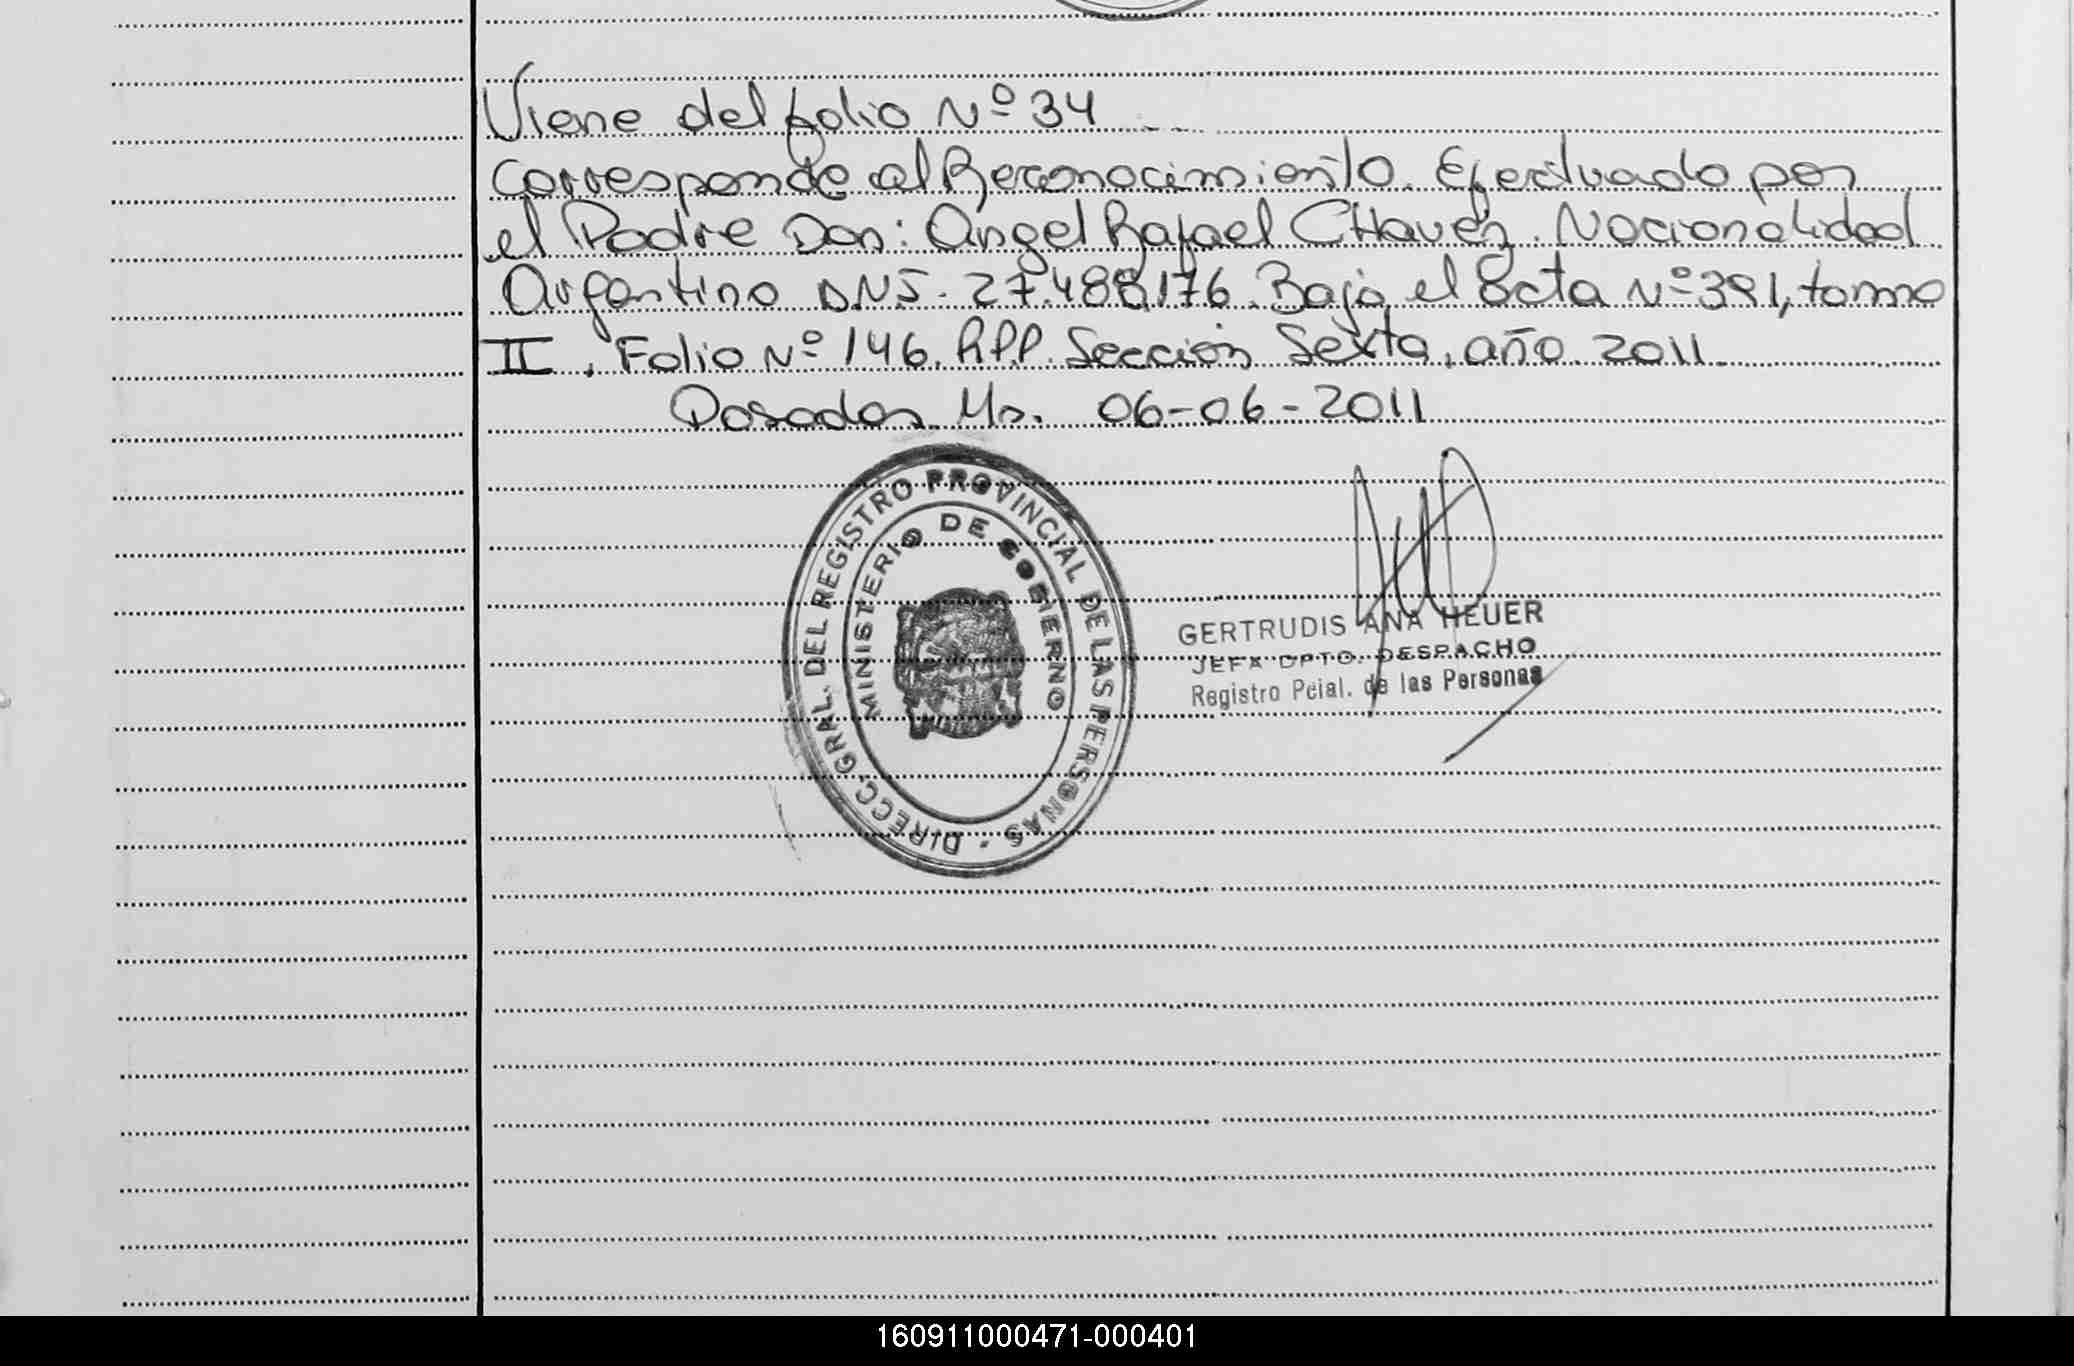 Viene del folio Nº 34
Corresponde al Reconocimiento. Efectuado por
el Padre Don: Angel Rafael CHavez. Nacionalidad
Argentino DNI. 27.488.176. Bajo el acta Nº 391, tomo
II. Folio Nº 146. R.P.P. Sección Sexta. año 2011
Posadas Ms. 06-06-2011
DIRECC. GRAL. DEL REGISTRO PROVINCIAL DE LAS PERSONAS
MINISTERIO DE GOBIERNO
GERTRUDIS ANA HEUER
JEFA DPTO. DESPACHO
Registro Pcial. de las Personas
160911000471-000401